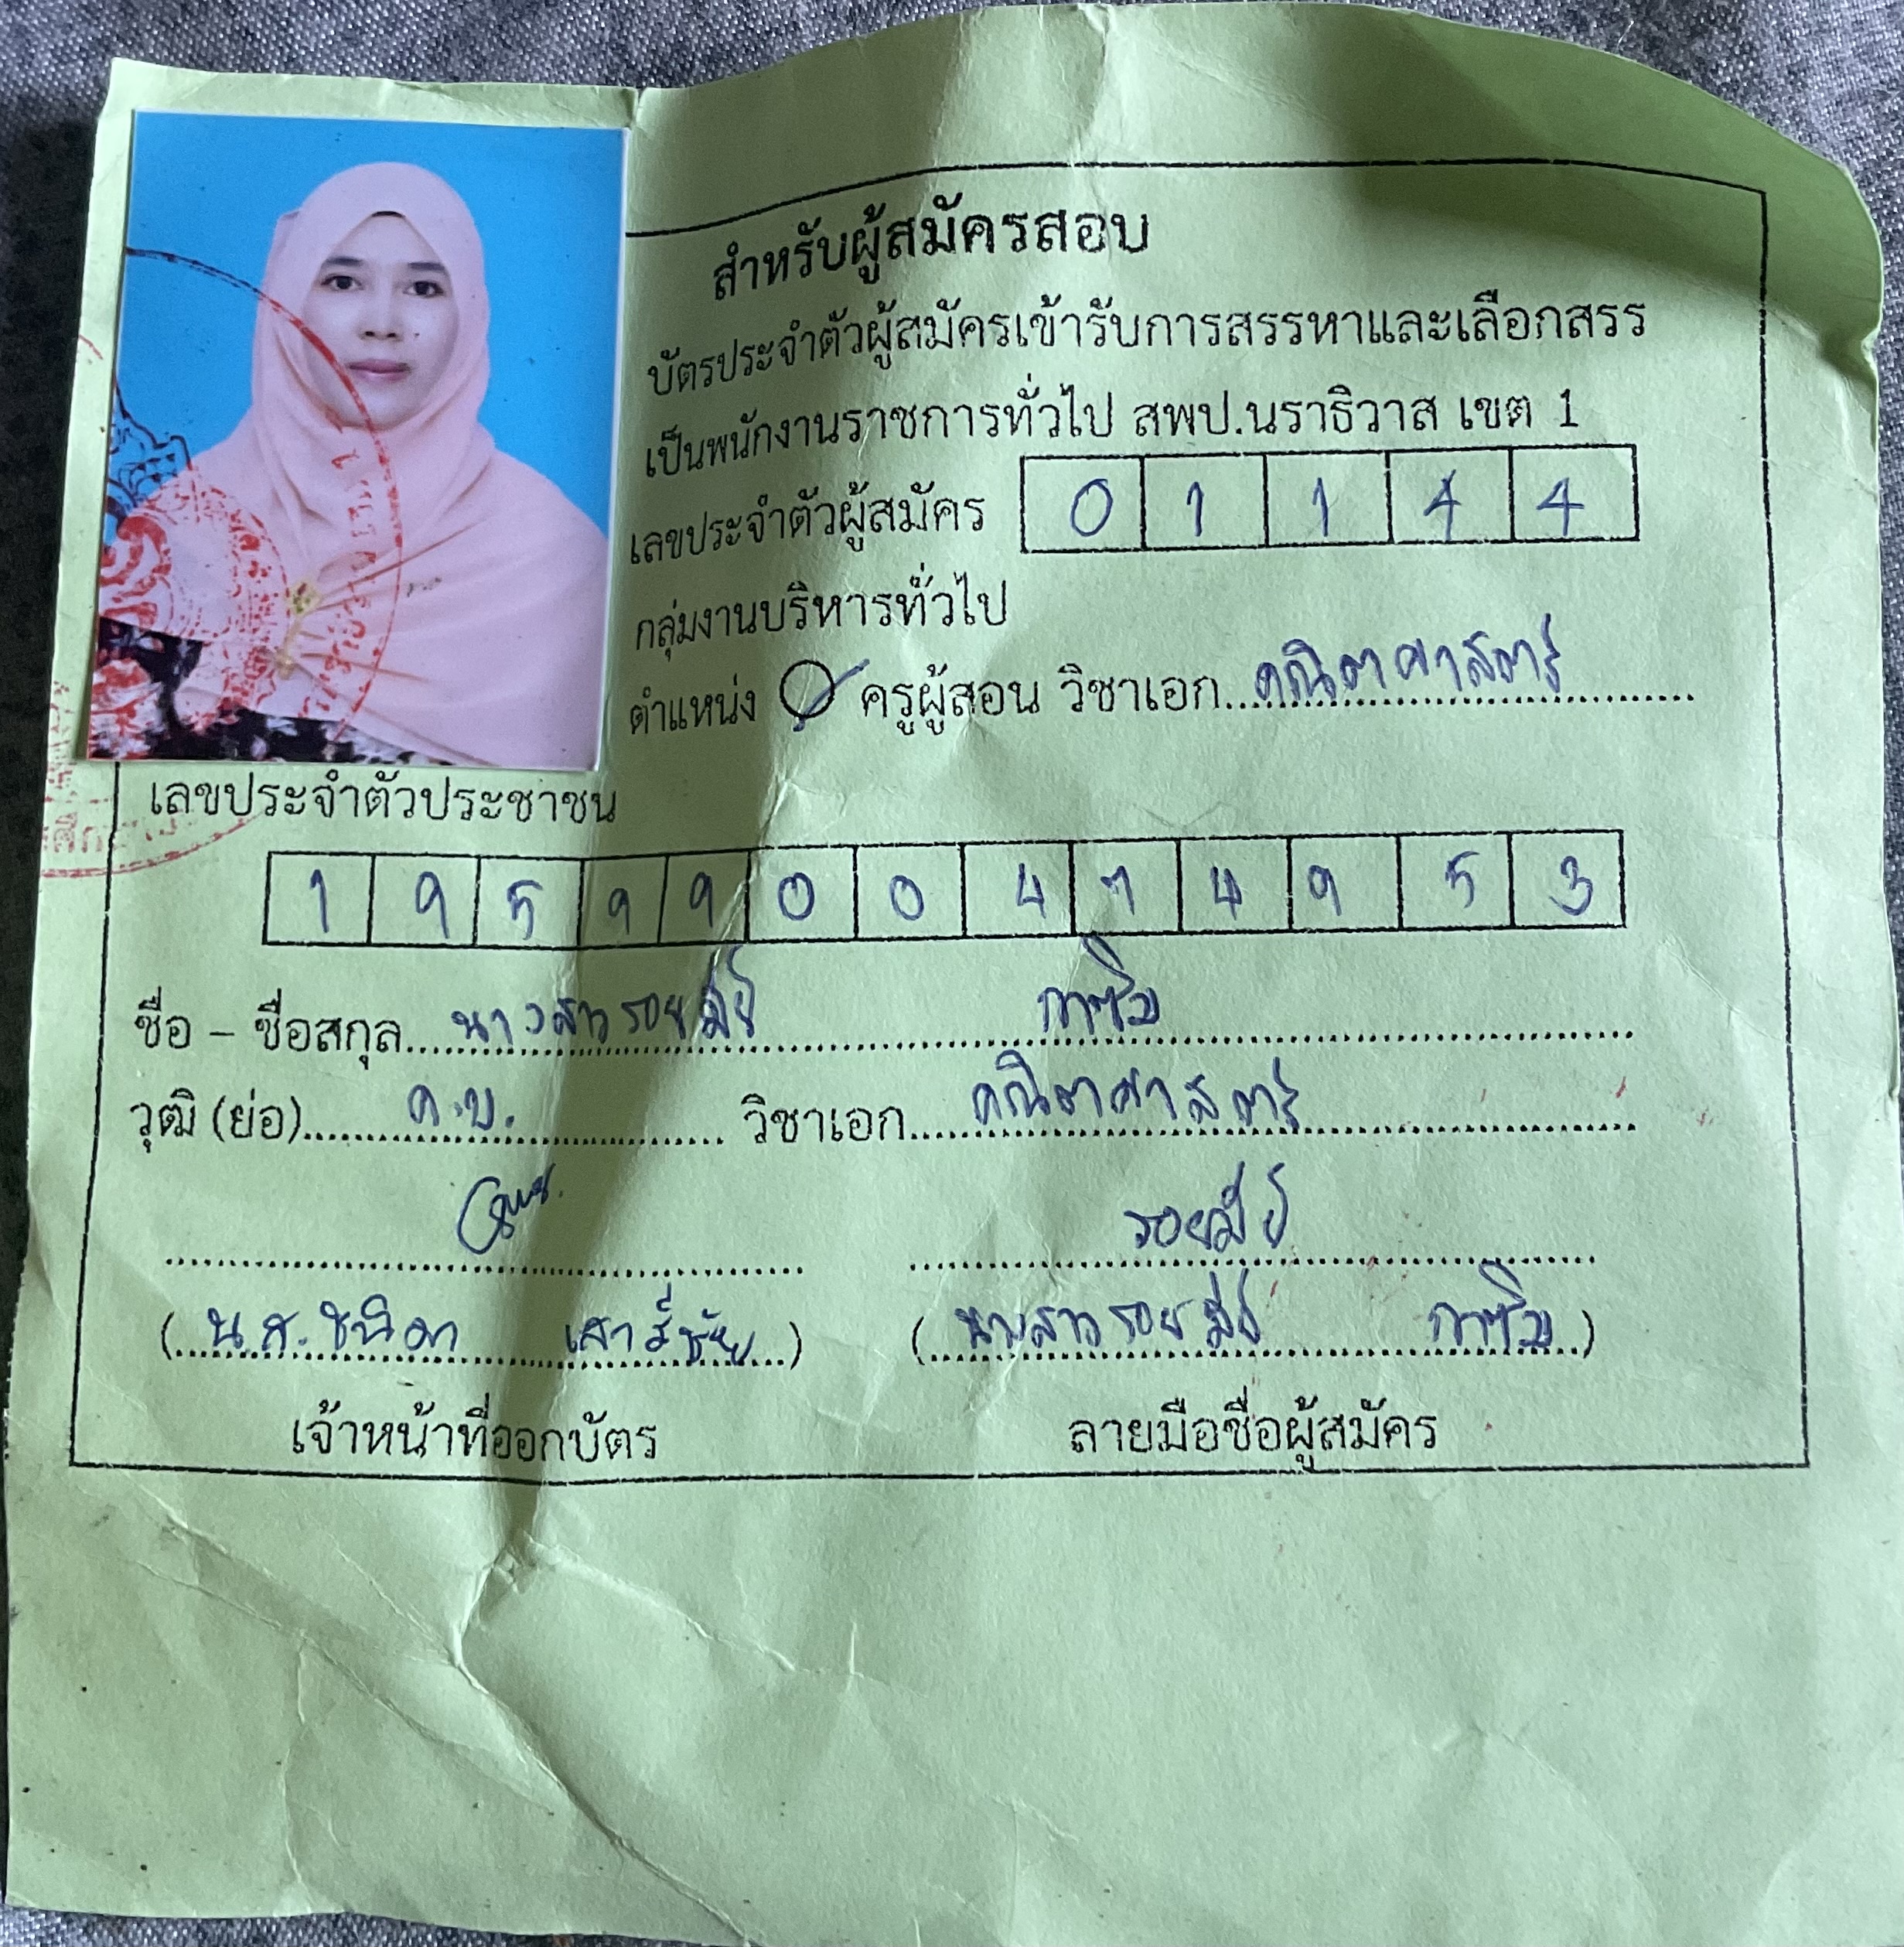 สำหรับผู้สมัครสอบ
บัตรประจำตัวผู้สมัครเข้ารับการสรรหาและเลือกสรร
เป็นพนักงานราชการทั่วไป สพป.นราธิวาส เขต 1
เลขประจำตัวผู้สมัคร 0 1 1 4 4
กลุ่มงานบริหารทั่วไป
ตำแหน่ง ครูผู้สอน วิชาเอก คณิตศาสตร์
เลขประจำตัวประชาชน
1 9 5 9 9 0 0 4 7 4 9 5 3
ชื่อ - ชื่อสกุล นางสาวรอยมีย์ กาซิม
วุฒิ (ย่อ) ค.บ. วิชาเอก คณิตศาสตร์
รอยมีย์
(น.ส.ชนิดา เสาร์ชัย) (นางสาวรอยมีย์ กาซิม)
เจ้าหน้าที่ออกบัตร ลายมือชื่อผู้สมัคร